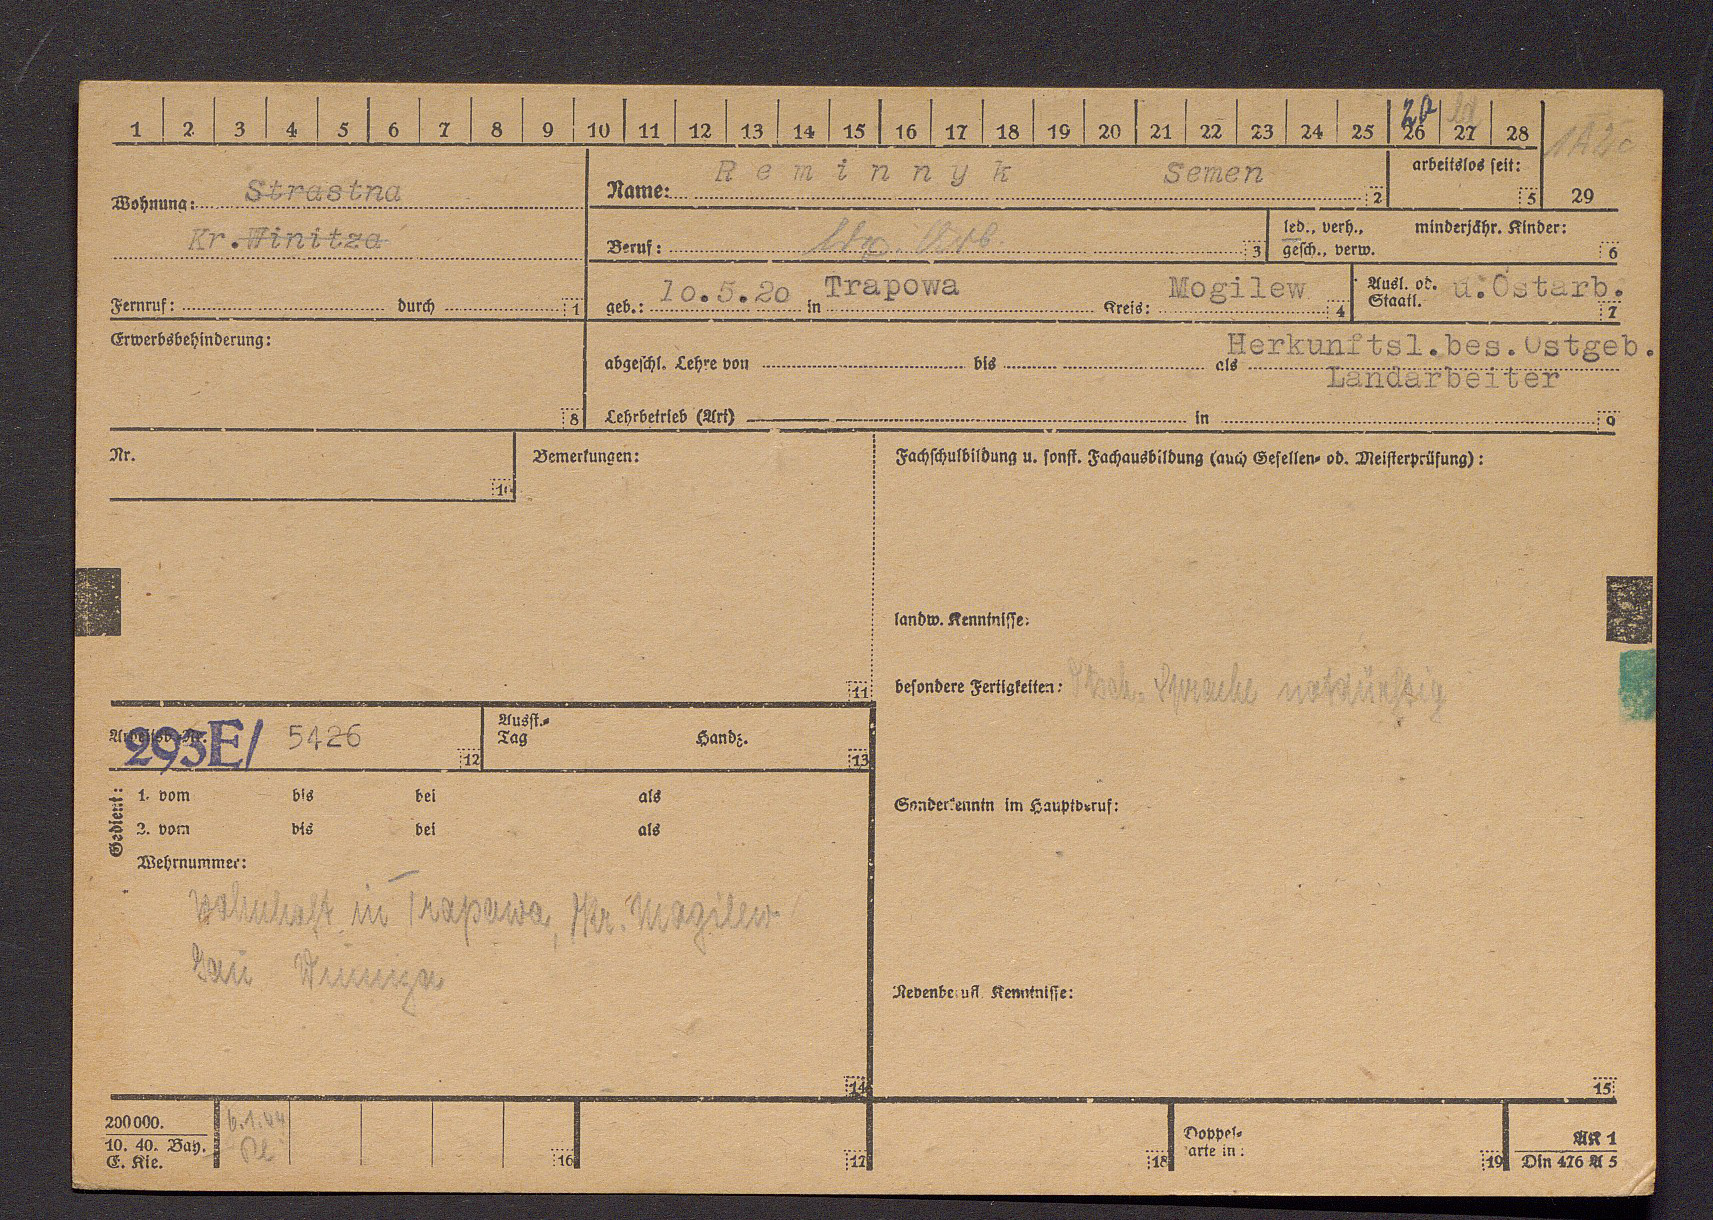 1 2 3 4 5 6 7 8 9 10 11 12 13 14 15 16 17 18 19 20 21 22 23 24 25 26 27 28
20
29
Wohnung: Strastna
Kr. Winitza
Fernruf: durch 1
Name: Reminnyk Semen 2
arbeitslos seit: 5
Beruf: 3
led., verh.,
gesch., verw.
minderjähr. Kinder: 6
geb.: 10.5.20 in Trapowa Kreis: Mogilew 4
Ausl. od.
Staatl. u. Ostarb. 7
Erwerbsbehinderung: 8
Herkunftsl.bes.Ostgeb.
abgeschl. Lehre von bis als
Landarbeiter
Lehrbetrieb (Art) in 9
Nr. 10
Bemerkungen: 11
Fachschulbildung u. sonst. Fachausbildung (auch Gesellen- od. Meisterprüfung):
landw. Kenntnisse:
besondere Fertigkeiten: Dtsch. Sprache notdürftig
Sonderkenntn im Hauptberuf:
Nebenberufl. Kenntnisse:
15
Arbeitsb.-Nr. 293E/ 5426 12
Ausst.-
Tag Handz. 13
Gedient:
1. vom bis bei als
2. vom bis bei als
Wehrnummer:
wohnhaft in Trapowa, Kr. Mogilew
Gau Winniza
14
200000.
10. 40. Bay.
E. Kie.
6.1.44
16
17
18
Doppel-
karte in: 19
AK 1
Din 476 A 5